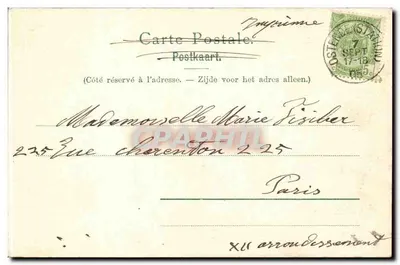 Imprimé
Carte Postale.
Postkaart.
(Côté réservé à l'adresse. – Zijde voor het adres alleen.)
7
SEPT
17-18
1905
Mademoiselle Marie Fisiber
225 Rue charenton 225
Paris
XII arrondissement
CPAPHIL